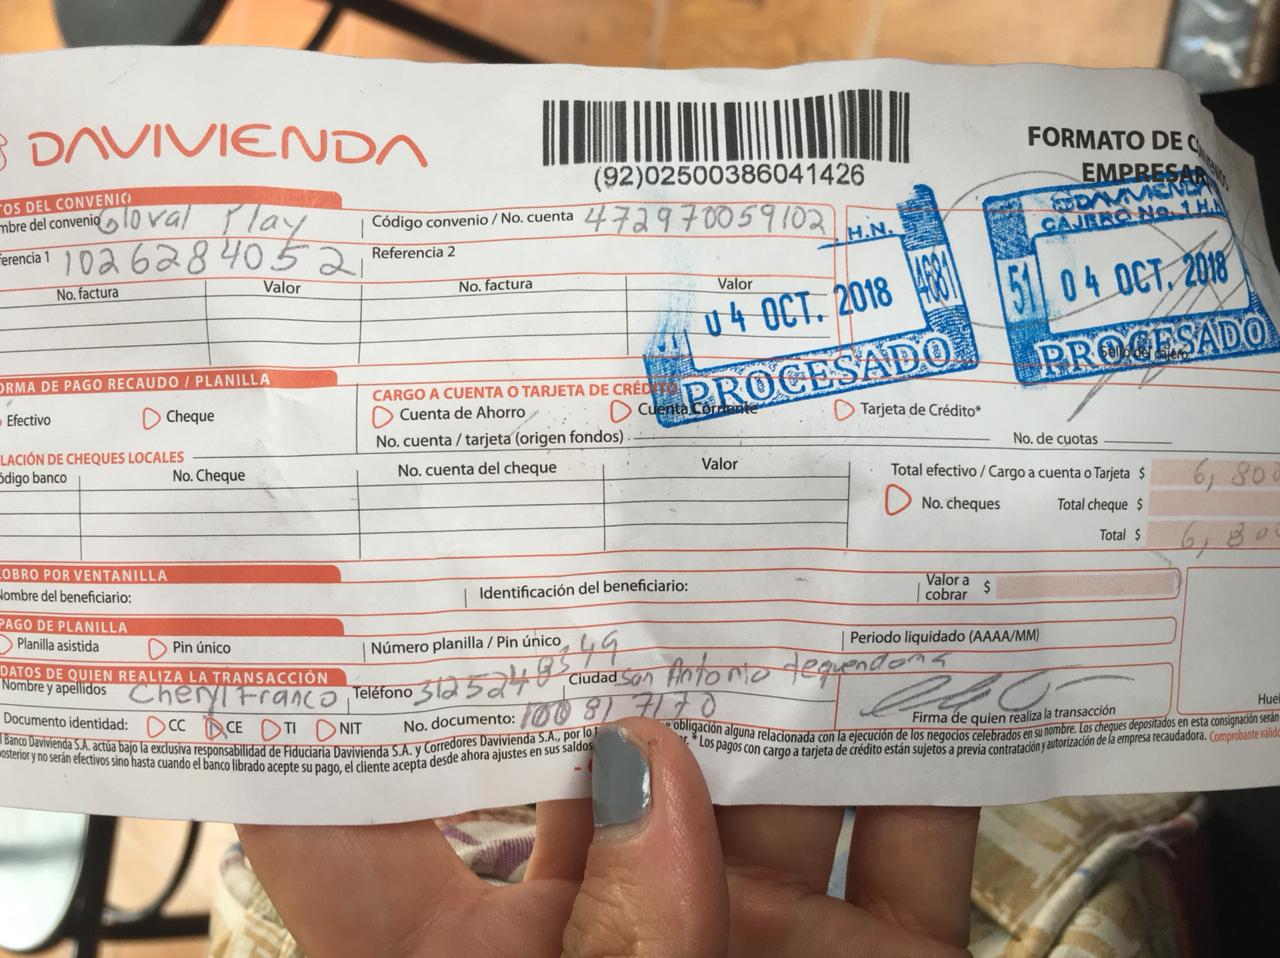 DAVIVIENDA
(92)02500386041426
FORMATO DE
EMPRESAR
TOS DEL CONVENIO
mbre del convenio Gloval Play
Código convenio / No. cuenta 472970059102
ferencia 1 1026284052
Referencia 2
No. factura Valor No. factura Valor
H.N.
04 OCT. 2018
4681
PROCESADO
DAVIVIENDA
CAJERO No. 1 H.N.
51
04 OCT. 2018
PROCESADO
Sello del cajero
ORMA DE PAGO RECAUDO / PLANILLA
Efectivo Cheque
CARGO A CUENTA O TARJETA DE CRÉDITO
Cuenta de Ahorro Cuenta Corriente Tarjeta de Crédito*
No. cuenta / tarjeta (origen fondos) No. de cuotas
LACIÓN DE CHEQUES LOCALES
ódigo banco No. Cheque No. cuenta del cheque Valor
Total efectivo / Cargo a cuenta o Tarjeta $ 6,800
No. cheques Total cheque $
Total $ 6,800
OBRO POR VENTANILLA
Nombre del beneficiario: Identificación del beneficiario: Valor a
cobrar $
PAGO DE PLANILLA
Planilla asistida Pin único Número planilla / Pin único Periodo liquidado (AAAA/MM)
DATOS DE QUIEN REALIZA LA TRANSACCIÓN
Nombre y apellidos Cheryl Franco Teléfono 3125248349 Ciudad San Antonio tequendama
Documento identidad: CC CE TI NIT No. documento: 1008177170
Firma de quien realiza la transacción
Huel
Banco Davivienda S.A. actúa bajo la exclusiva responsabilidad de Fiduciaria Davivienda S.A. y Corredores Davivienda S.A., por lo
obligación alguna relacionada con la ejecución de los negocios celebrados en su nombre. Los cheques depositados en esta consignación serán
osterior y no serán efectivos sino hasta cuando el banco librado acepte su pago, el cliente acepta desde ahora ajustes en sus saldos
* Los pagos con cargo a tarjeta de crédito están sujetos a previa contratación y autorización de la empresa recaudadora. Comprobante válido